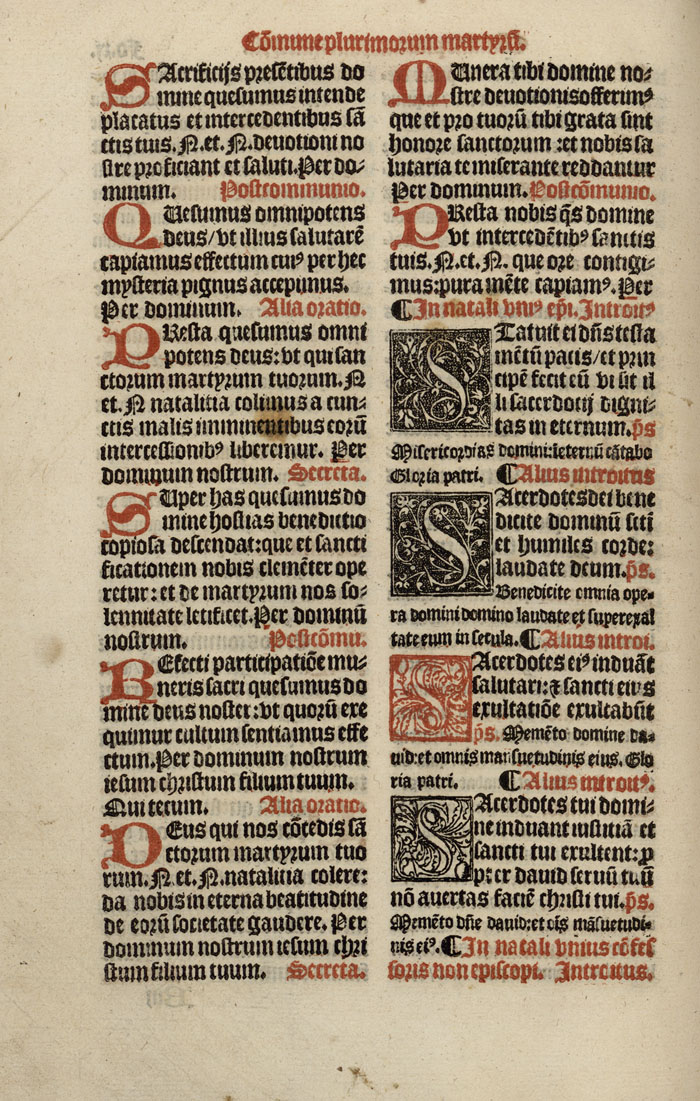 Cōmune plurimorum martyrū.
SAcrificijs presētibus do
mine quesumus intende
placatus et intercedentibus sā
ctis tuis. N. et. N. deuotioni no
stre proficiant et saluti. Per do-
minum. Postcommunio.
QUesumus omnipotens
deus/vt illius salutarē
capiamus effectum cuiꝰ per hec
mysteria pignus accepimus.
Per dominum. Alia oratio.
PResta quesumus omni
potens deus: vt qui san
ctorum martyrum tuorum. N
et. N natalitia colimus a cun-
ctis malis imminentibus eorū
intercessionibꝰ liberemur. Per
dominum nostrum. Secreta.
SUper has quesumus do
mine hostias benedictio
copiosa descendat: que et sancti
ficationem nobis clemēter ope
retur: et de martyrum nos so-
lennitate letificet. Per dominū
nostrum. Postcōmu.
REfecti participatiōe mu-
neris sacri quesumus do
mine deus noster: vt quorū exe
quimur cultum sentiamus effe
ctum. Per dominum nostrum
iesum christum filium tuum.
Qui tecum. Alia oratio.
DEus qui nos cōcedis sā
ctorum martyrum tuo
rum. N. et. N. natalitia colere:
da nobis in eterna beatitudine
de eorū societate gaudere. Per
dominum nostrum iesum chri
stum filium tuum. Secreta.
MUnera tibi domine no-
stre deuotionis offerimꝰ
que et pro tuorū tibi grata sint
honore sanctorum: et nobis sa
lutaria te miserante reddantur
Per dominum. Postcōmunio.
PResta nobis q̄s domine
vt intercedētibꝰ sanctis
tuis. N. et. N. que ore contigi-
mus: pura mēte capiamꝰ. Per
¶ In natali vniꝰ ep̄i. Introitꝰ
STatuit ei dn̄s testa
mētū pacis/et prin
cipē fecit eū vt sit il
li sacerdotij digni-
tas in eternum. p̄s
Misericordias domini: ieternū cātabo
Gloria patri. ¶ Alius introitus
SAcerdotes dei bene
dicite dominū scti
et humiles corde:
laudate deum. p̄s.
Benedicite omnia ope-
ra domini domino laudate et superexal
tate eum in secula. ¶ Alius introi.
SAcerdotes eiꝰ induāt
salutari: ⁊ sancti eius
exultatiōe exultabūt
p̄s. Memēto domine da-
uid: et omnis mansuetudinis eius. Glo
ria patri. ¶ Alius introitꝰ.
SAcerdotes tui domi-
ne induant iustitiā et
sancti tui exultent: ꝓ
pter dauid seruū tuū
nō auertas faciē christi tui. p̄s.
Memēto dn̄e dauid: et oīs māsuetudi-
nis eiꝰ. ¶ In natali vnius cōfes
soris non episcopi. Introitus.